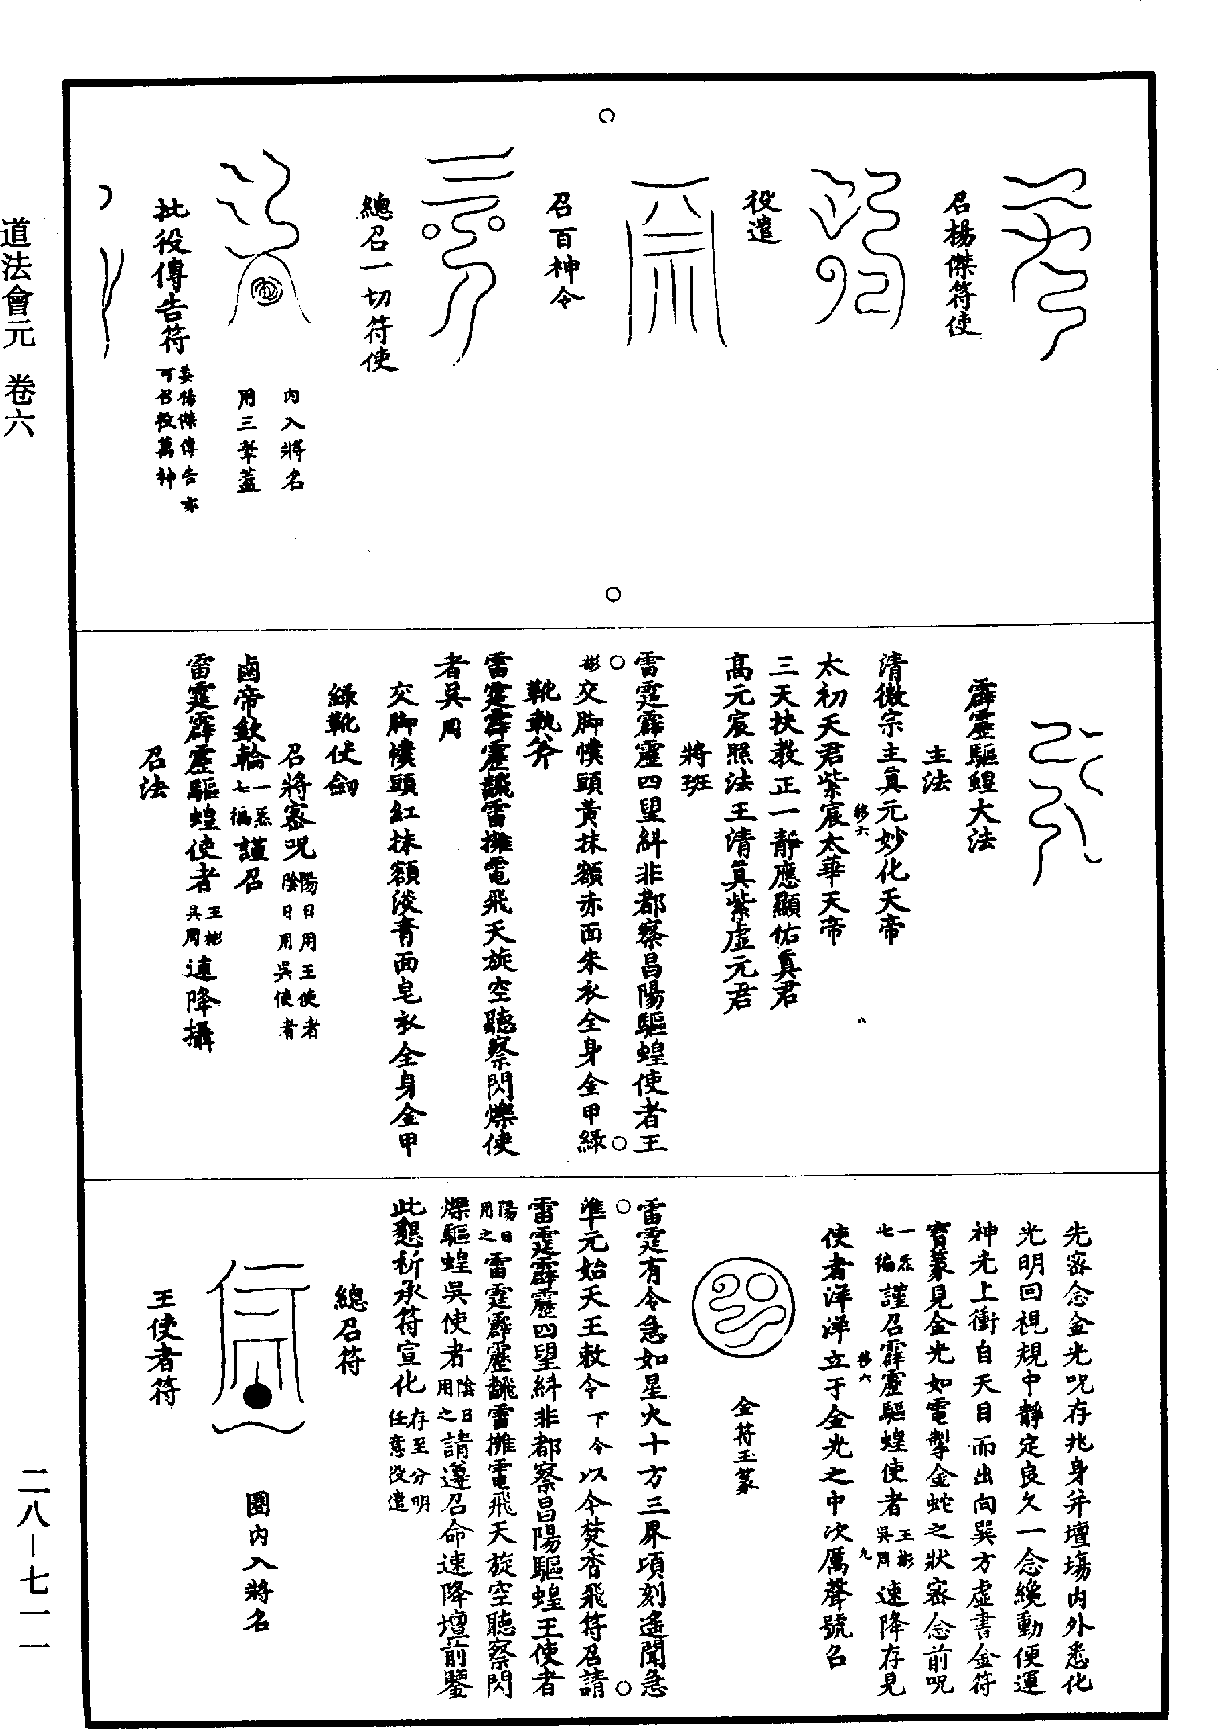 召楊傑符使
役遣
召百神令
總召一切符使
內入將名
用三筆蓋
批役傳告符
委楊傑傳告亦
可召役萬神
霹靂驅蝗大法
主法
清微宗主真元妙化天帝
太初天君紫宸太華天帝
三天扶教正一靜應顯佑真君
高元宸照法王清真紫虛元君
將班
雷霆霹靂四望糾非都察昌陽驅蝗使者王
彬
交脚幞頭黃抹額赤面朱衣全身金甲綠
靴執斧
雷霆霹靂飈雷擁電飛天旋空聽察閃爍使
者吳周
交脚幞頭紅抹額淡青面皂衣全身金甲
綠靴使劒
召將密呪
陽日用王使者
陰日用吳使者
鹵帝欽輪
一炁
七編
謹召
雷霆霹靂驅蝗使者
王彬
吳周
速降攝
召法
先密念金光呪存兆身并壇場內外悉化
光明回視規中靜定良久一念纔動便運
神光上衝自天目而出向巽方虛書金符
寶篆見金光如電掣金蛇之狀密念前呪
一炁
七編
謹召霹靂驅蝗使者
王彬
吳周
速降存見
使者洋洋立于金光之中次厲聲號召
金符玉篆
雷霆有令急如星火十方三界頃刻遙聞急
準元始天王敕令下令以令焚香飛符召請
雷霆霹靂四望糾非都察昌陽驅蝗王使者
陽日
用之
雷霆霹靂飈雷擁電飛天旋空聽察閃
爍驅蝗吳使者
陰日
用之
請遵召命速降壇前鑒
此懇祈承符宣化
存至分明
任意役遣
總召符
圈內入將名
王使者符
道法會元 卷六
二八—七一一